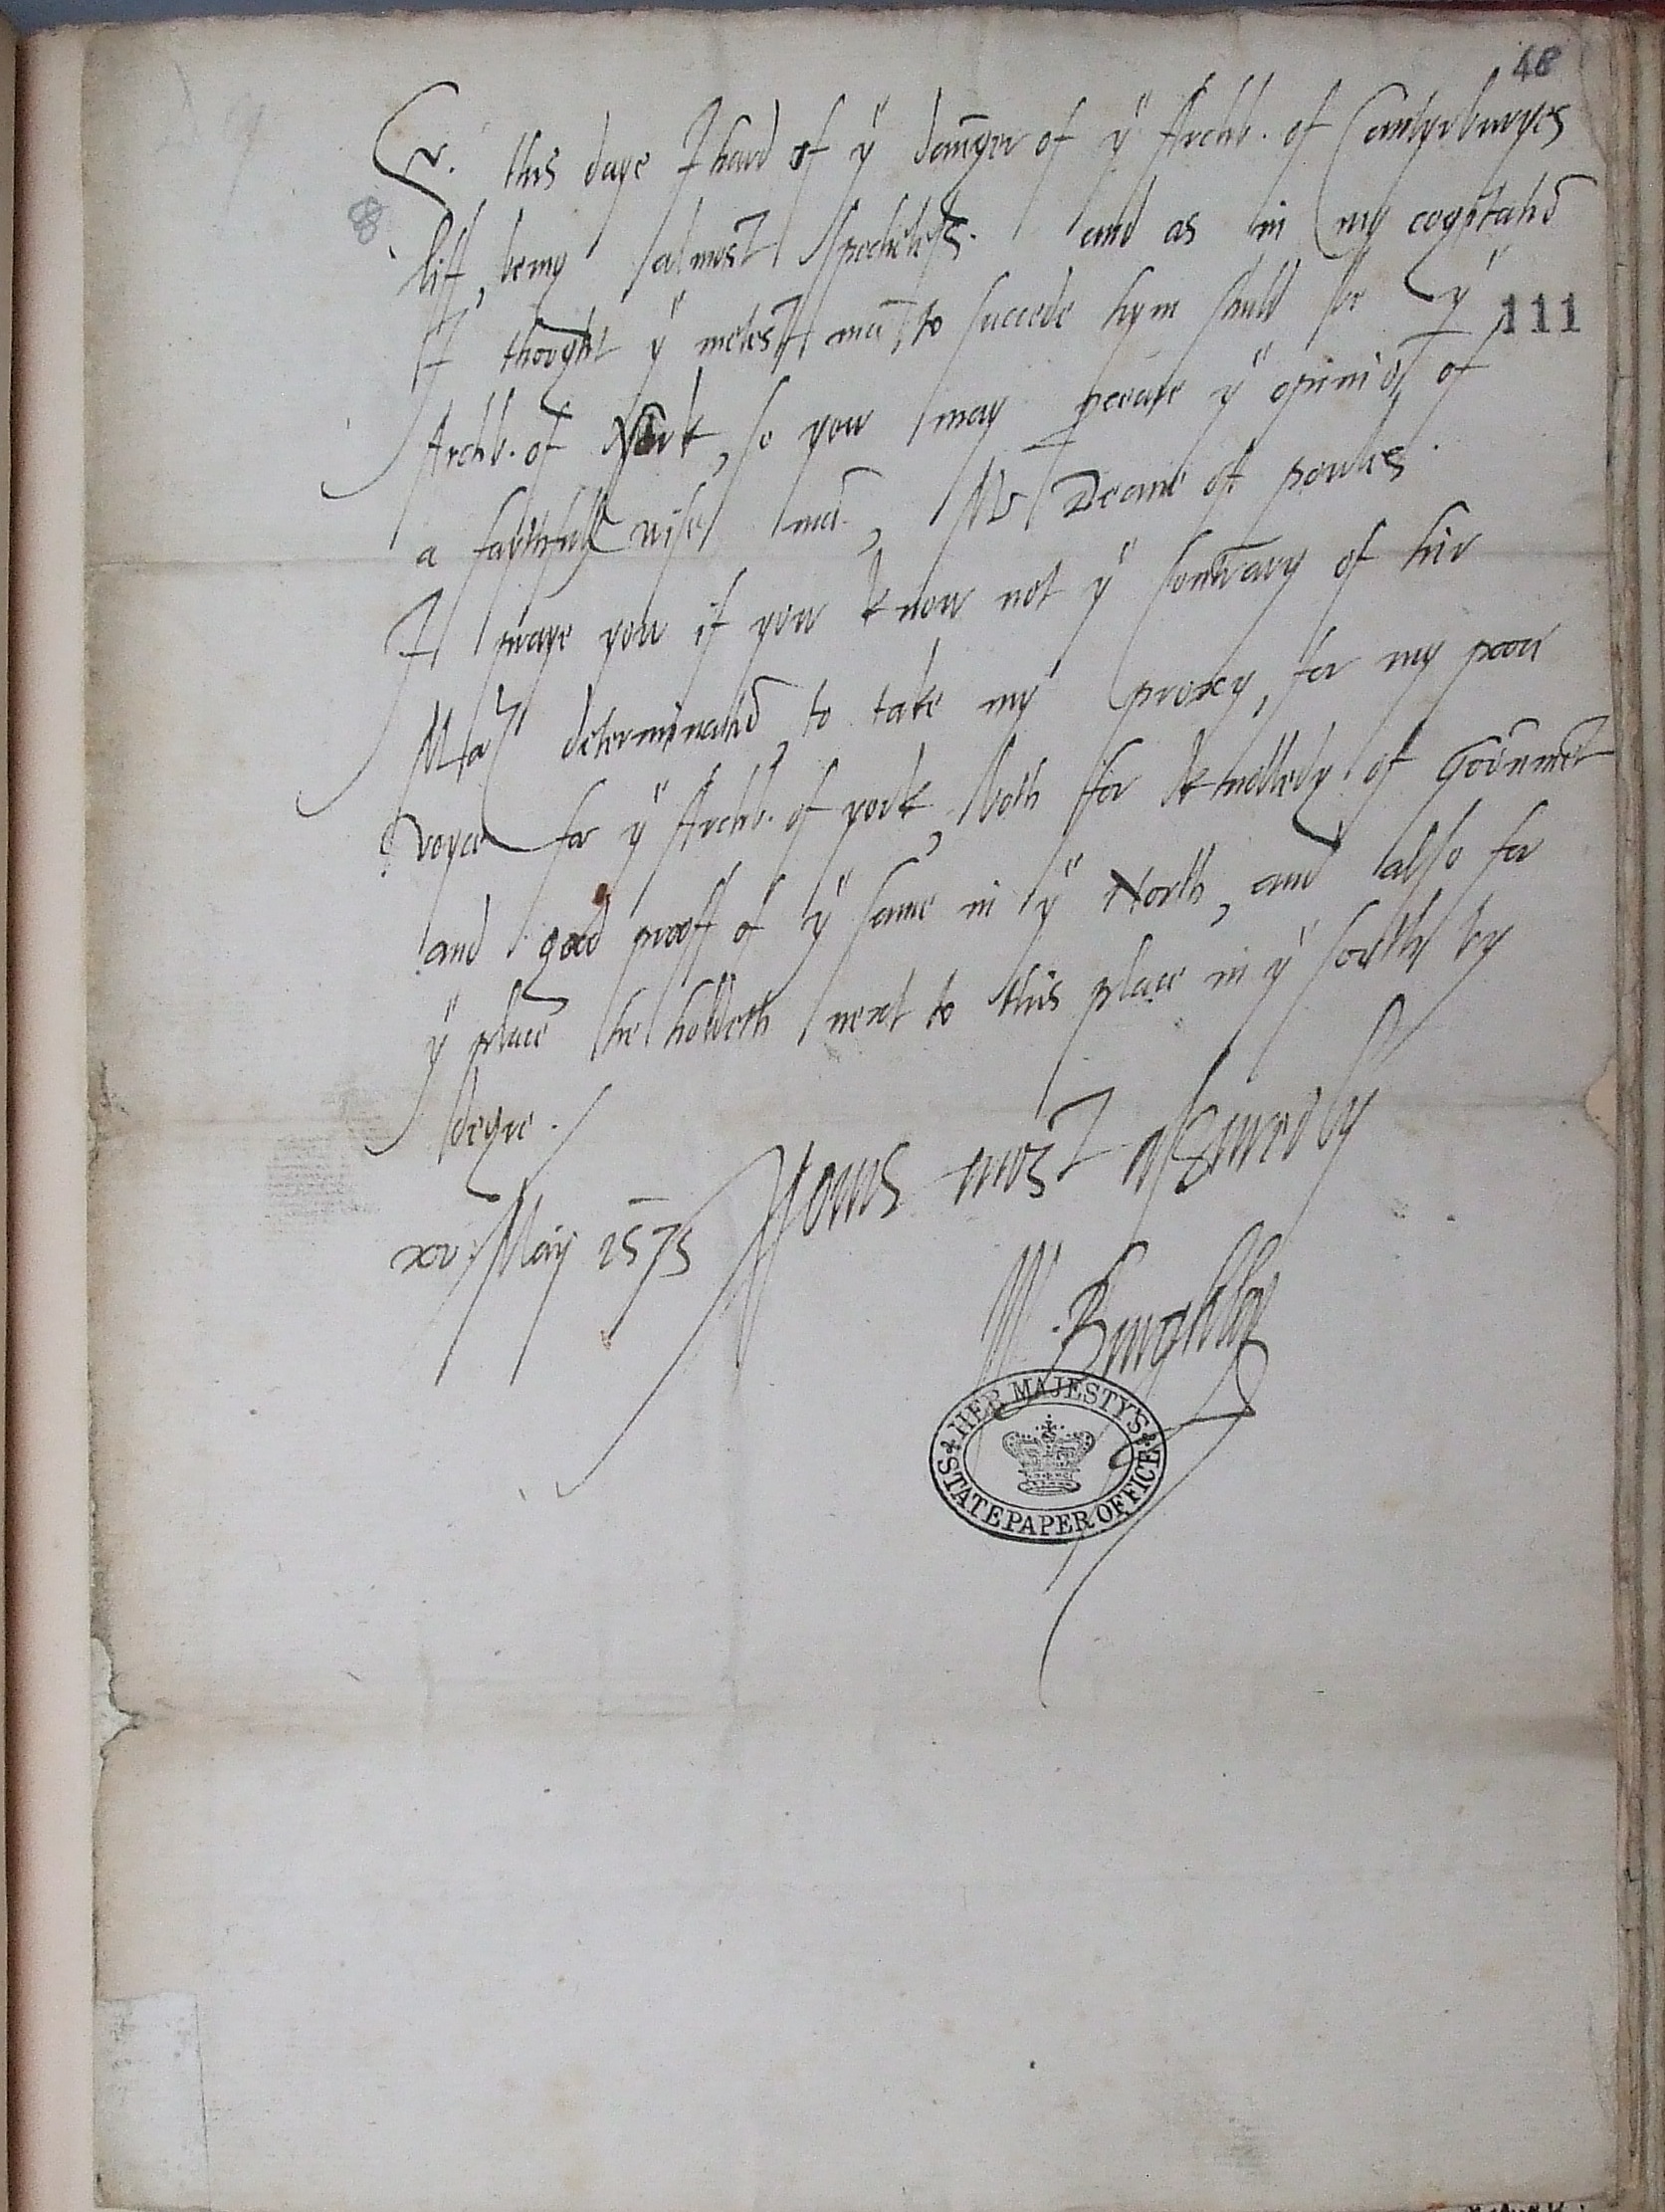 48
Sr. this daye I hard of ye daunger of ye Archb. of Canterburyes
8
liff, being almost specheless. and as in my cogitatiō
I thought ye metest mā to succede hym shuld be ye
111
Archb. of York, so you may perceave ye opiniō of
a faythfull wise mā, Mr Deane of powles.
I praye you if you know not ye contrary of hir
Maty determinatiō, to take my proxy, for my poor
voyce for ye Archb. of york, both for knolledg of Govermēt
and good prooff of ye same in ye North, and also for
ye place he holdeth next to this place in ye south by
degre.
xv May 1575 Yours most assuredly
W. Burghley
HER MAJESTY'S
STATE PAPER OFFICE